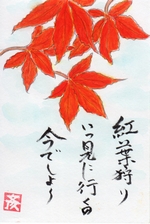 紅葉狩り
いつ見に行く
今でしょ〜